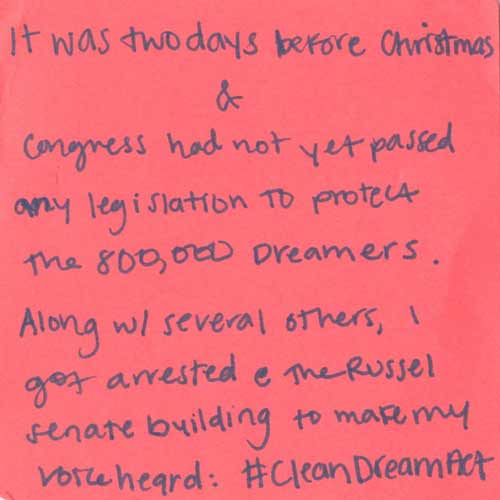 It was two days before Christmas
&
Congress had not yet passed
any legislation to protect
the 800,000 Dreamers.
Along w/ several others, I
got arrested @ the Russel
senate building to make my
voice heard: #CleanDreamAct